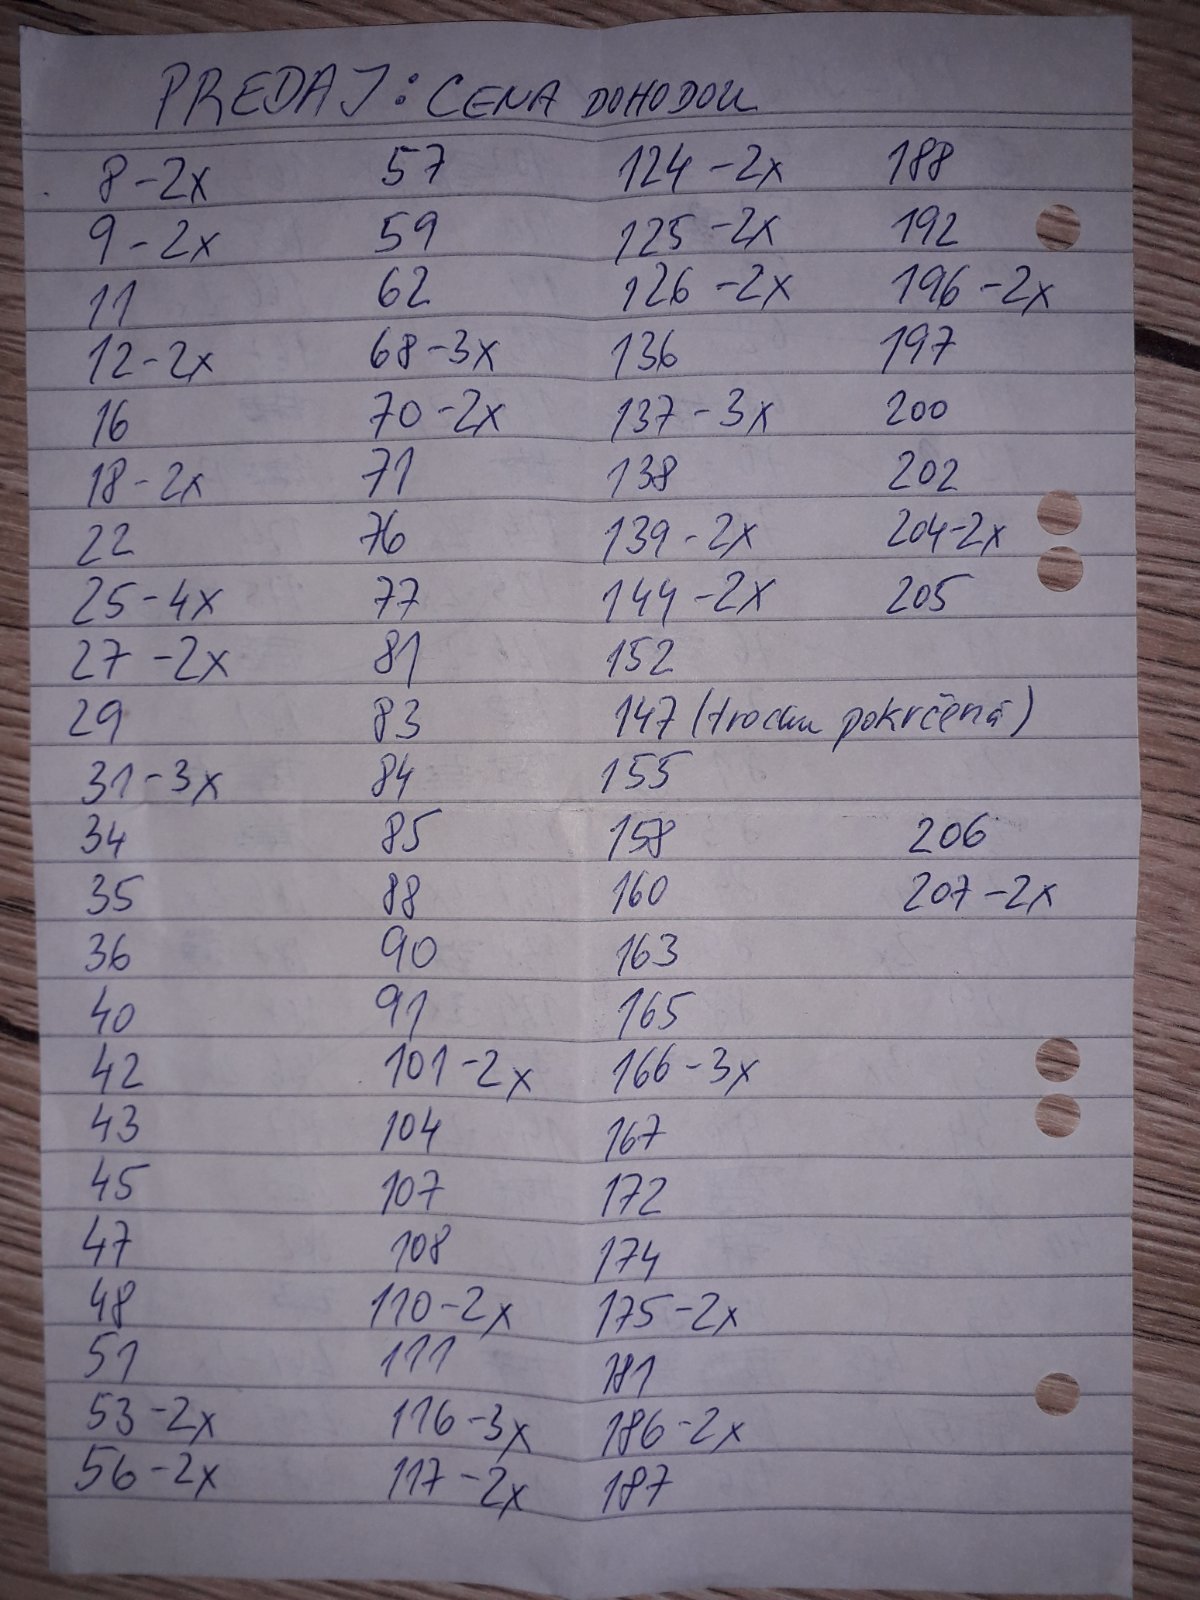 PREDAJ: CENA DOHODOU
8-2x 57 124-2x 188
9-2x 59 125-2x 192
11 62 126-2x 196-2x
12-2x 68-3x 136 197
16 70-2x 137-3x 200
18-2x 71 138 202
22 76 139-2x 204-2x
25-4x 77 144-2x 205
27-2x 81 152
29 83 147 (trochu pokrčená)
31-3x 84 155
34 85 158 206
35 88 160 207-2x
36 90 163
40 91 165
42 101-2x 166-3x
43 104 167
45 107 172
47 108 174
48 110-2x 175-2x
51 111 181
53-2x 116-3x 186-2x
56-2x 117-2x 187